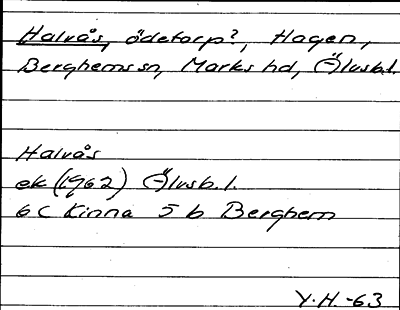 Halvås, ödetorp?, Hagen,
Berghems sn, Marks hd, Älvsb.l.
Halvås
ek (1962) Älvsb.l.
6C Kinna 5 b Berghem
Y.H. -63